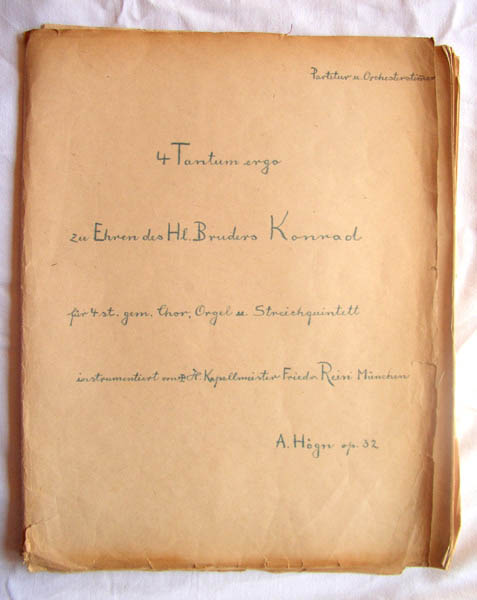 Partitur u. Orchesterstimmen
4 Tantum ergo
zu Ehren des Hl. Bruders Konrad
für 4 st. gem. Chor, Orgel u. Streichquintett
instrumentiert von Kapellmeister Friedr. Rein München
A. Högn op. 32